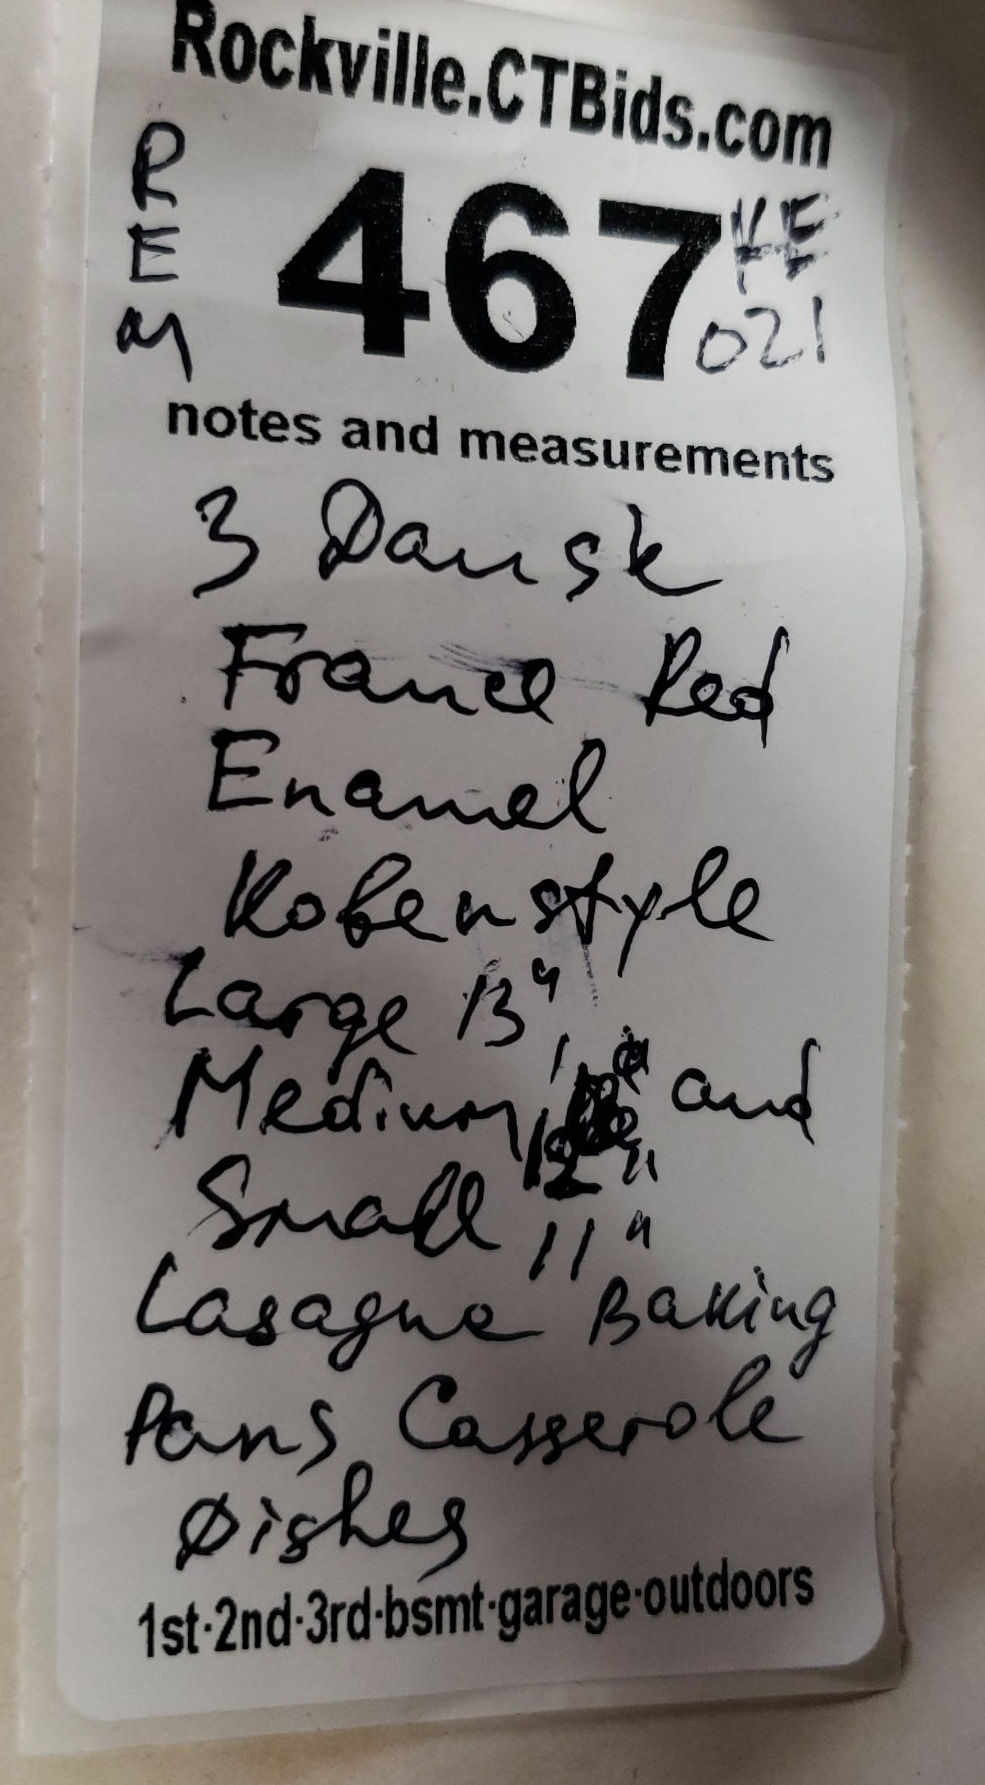 Rockville.CTBids.com
R
E
M
467
KE
021
notes and measurements
3 Dansk
France Red
Enamel
Kobenstyle
Large 13"
Medium, 12" and
Small 11"
Lasagne Baking
Pans Casserole
Dishes
1st·2nd·3rd·bsmt·garage·outdoors